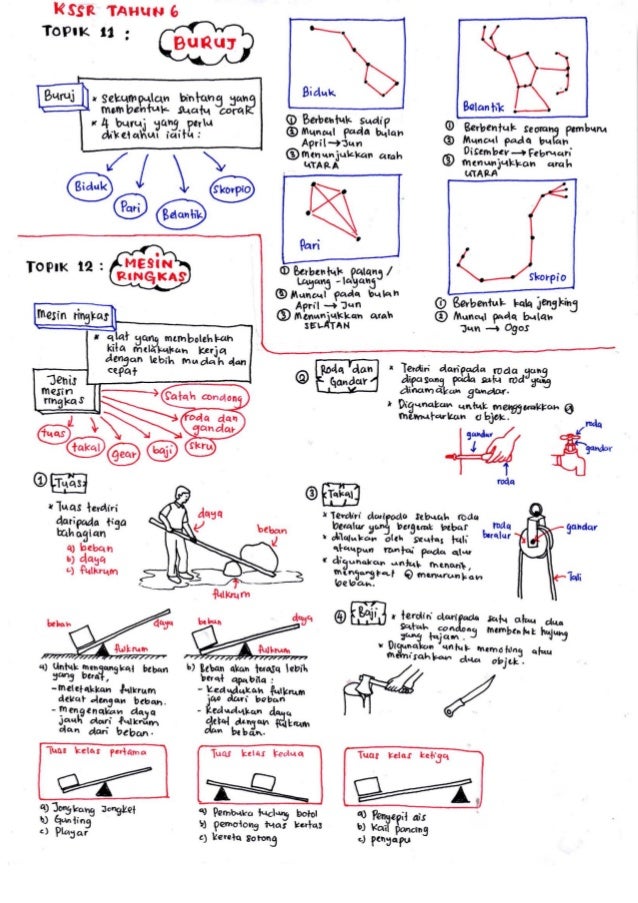 KSSR TAHUN 6
TOPIK 11 :
BURUJ
Buruj
* sekumpulan bintang yang
membentuk suatu corak
* 4 buruj yang perlu
diketahui iaitu :
Biduk
Pari
Belantik
Skorpio
Biduk
① Berbentuk sudip
② Muncul pada bulan
April → Jun
③ menunjukkan arah
UTARA
Belantik
① Berbentuk seorang pemburu
② Muncul pada bulan
Disember → Februari
③ menunjukkan arah
UTARA
Pari
① Berbentuk palang /
Layang - layang
② Muncul pada bulan
April → Jun
③ Menunjukkan arah
SELATAN
Skorpio
① Berbentuk kala jengking
② Muncul pada bulan
Jun → Ogos
TOPIK 12 :
MESIN
RINGKAS
Mesin ringkas
* alat yang membolehkan
kita melakukan kerja
dengan lebih mudah dan
cepat
Jenis
mesin
ringkas
Satah condong
roda dan
gandar
skru
baji
gear
takal
tuas
② Roda dan
Gandar
* Terdiri daripada roda yang
dipasang pada satu rod yang
dinamakan gandar.
* Digunakan untuk menggerakkan @
memutarkan objek.
gandar
roda
roda
gandar
① Tuas
* Tuas terdiri
daripada tiga
bahagian
a) beban
b) daya
c) fulkrum
daya
beban
fulkrum
③ Takal
* Terdiri daripada sebuah roda
beralur yang bergerak bebas
* dilalukan oleh seutas tali
ataupun rantai pada alur
* digunakan untuk menarik,
mengangkat @ menurunkan
beban.
roda
beralur
gandar
Tali
beban
daya
fulkrum
a) Untuk mengangkat beban
yang berat,
- meletakkan fulkrum
dekat dengan beban.
- mengenakan daya
jauh dari fulkrum
dan dari beban.
beban
daya
fulkrum
b) Beban akan terasa lebih
berat apabila :
- Kedudukan fulkrum
jao dari beban
- Kedudukan daya
dekat dengan fulkrum
dan beban.
④ Baji
* terdiri daripada satu atau dua
satah condong membentuk hujung
yang tajam.
* Digunakan untuk memotong atau
memisahkan dua objek.
Tuas kelas pertama
a) Jongkang Jongket
b) Gunting
c) Playar
Tuas kelas kedua
a) Pembuka tudung botol
b) pemotong tuas kertas
c) kereta sorong
Tuas kelas ketiga
a) Penyepit ais
b) Kail pancing
c) penyapu